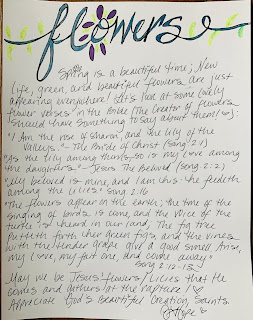 flowers
Spring is a beautiful time; New
life, green, and beautiful flowers are just
appearing everywhere! Let's look at some lovely
flower verses in the Bible (The Creator of flowers
should have something to say about them!):
"I Am the rose of sharon, and the lily of the
valleys." - The Bride of Christ (Song 2:1)
"As the lily among thorns, so is my love among
the daughters" - Jesus The Beloved (Song 2:2)
"My beloved is mine, and I am his: he feedeth
among the lilies" Song 2:16
"The flowers appear on the earth; the time of the
singing of birds is come, and the voice of the
turtle is heard in our land; The fig tree
putteth forth her green figs, and the vines
with the tender grape give a good smell. Arise,
my love, my fair one, and come away."
Song 2:12-13
May we be Jesus' flowers/lilies that He
comes and gathers at the rapture!
Appreciate God's Beautiful Creation, Saints.
Hope